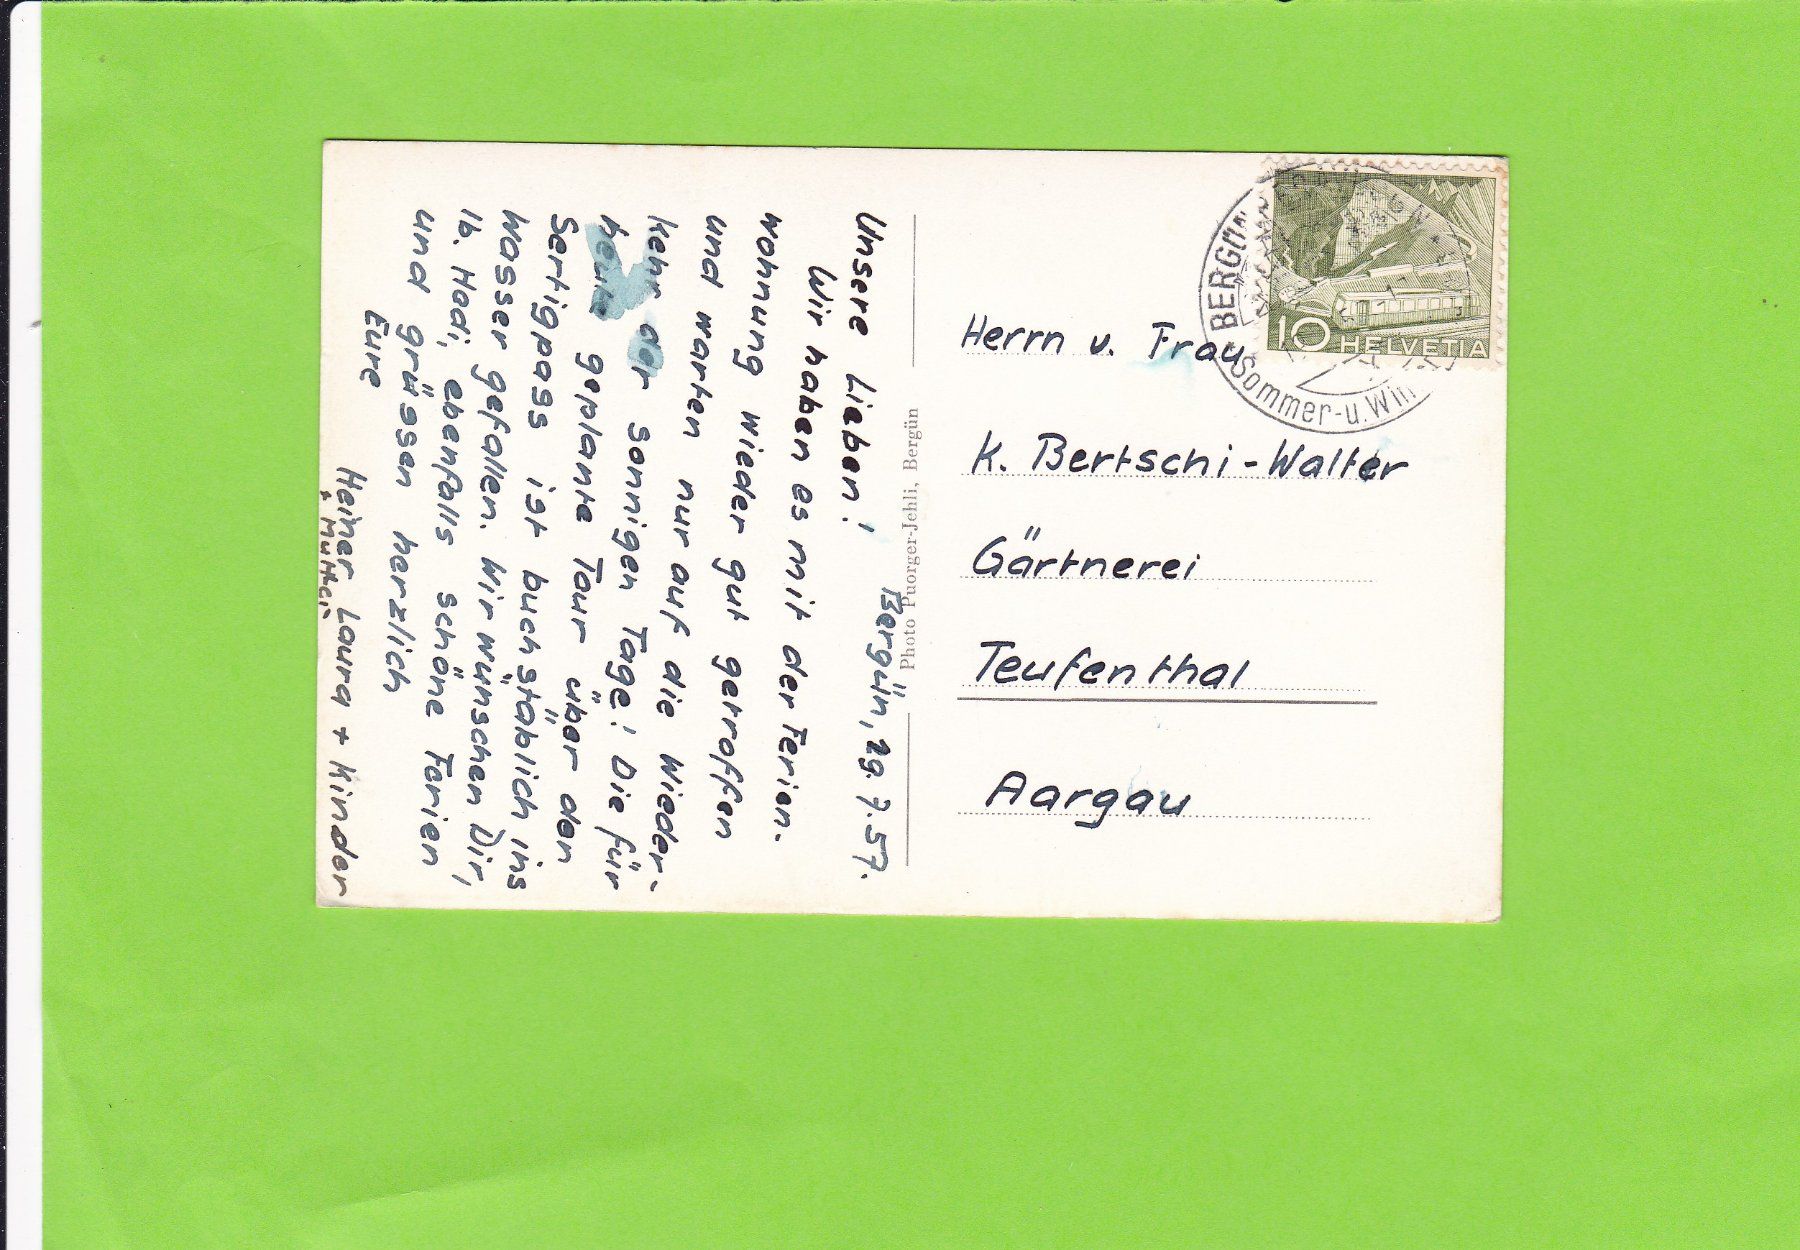 Bergün, 29.7.57.
Unsere Lieben!
Wir haben es mit der Ferien-
wohnung wieder gut getroffen
und warten nur auf die Wieder-
kehr der sonnigen Tage! Die für
heute geplante Tour über den
Sertigpass ist buchstäblich ins
Wasser gefallen. Wir wünschen Dir,
lb. Hedi, ebenfalls schöne Ferien
und grüssen herzlich
Eure
Heiner Laura + Kinder
+ Mutti
Photo Puorger-Jehli, Bergün
BERGÜN
Sommer-u. Win
10 HELVETIA
Herrn u. Frau
K. Bertschi-Walter
Gärtnerei
Teufenthal
Aargau